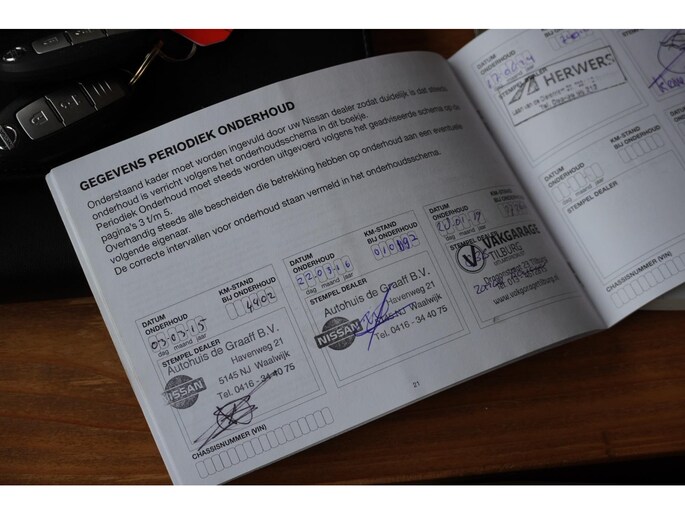 GEGEVENS PERIODIEK ONDERHOUD
Onderstaand kader moet worden ingevuld door uw Nissan dealer zodat duidelijk is dat steeds
onderhoud is verricht volgens het onderhoudsschema in dit boekje.
Periodiek Onderhoud moet steeds worden uitgevoerd volgens het geadviseerde schema op de
pagina's 3 t/m 5.
Overhandig steeds alle bescheiden die betrekking hebben op onderhoud aan een eventuele
volgende eigenaar.
De correcte intervallen voor onderhoud staan vermeld in het onderhoudsschema.
DATUM ONDERHOUD
KM-STAND BIJ ONDERHOUD
03-03-15
4402
dag maand jaar
STEMPEL DEALER
Autohuis de Graaff B.V.
Havenweg 21
5145 NJ Waalwijk
Tel. 0416 - 34 40 75
NISSAN
CHASSISNUMMER (VIN)
DATUM ONDERHOUD
KM-STAND BIJ ONDERHOUD
22 03 16
dag maand jaar
STEMPEL DEALER
Autohuis de Graaff B.V.
Havenweg 21
5145 NJ Waalwijk
Tel. 0416 - 34 40 75
NISSAN
DATUM ONDERHOUD
KM-STAND BIJ ONDERHOUD
dag maand jaar
STEMPEL DEALER
VAKGARAGE
TILBURG
www.vakgaragetilburg.nl
21
DATUM ONDERHOUD
dag maand jaar
STEMPEL DEALER
HERWERS
KM-STAND BIJ ONDERHOUD
DATUM ONDERHOUD
dag maand jaar
STEMPEL DEALER
CHASSISNUMMER (VIN)